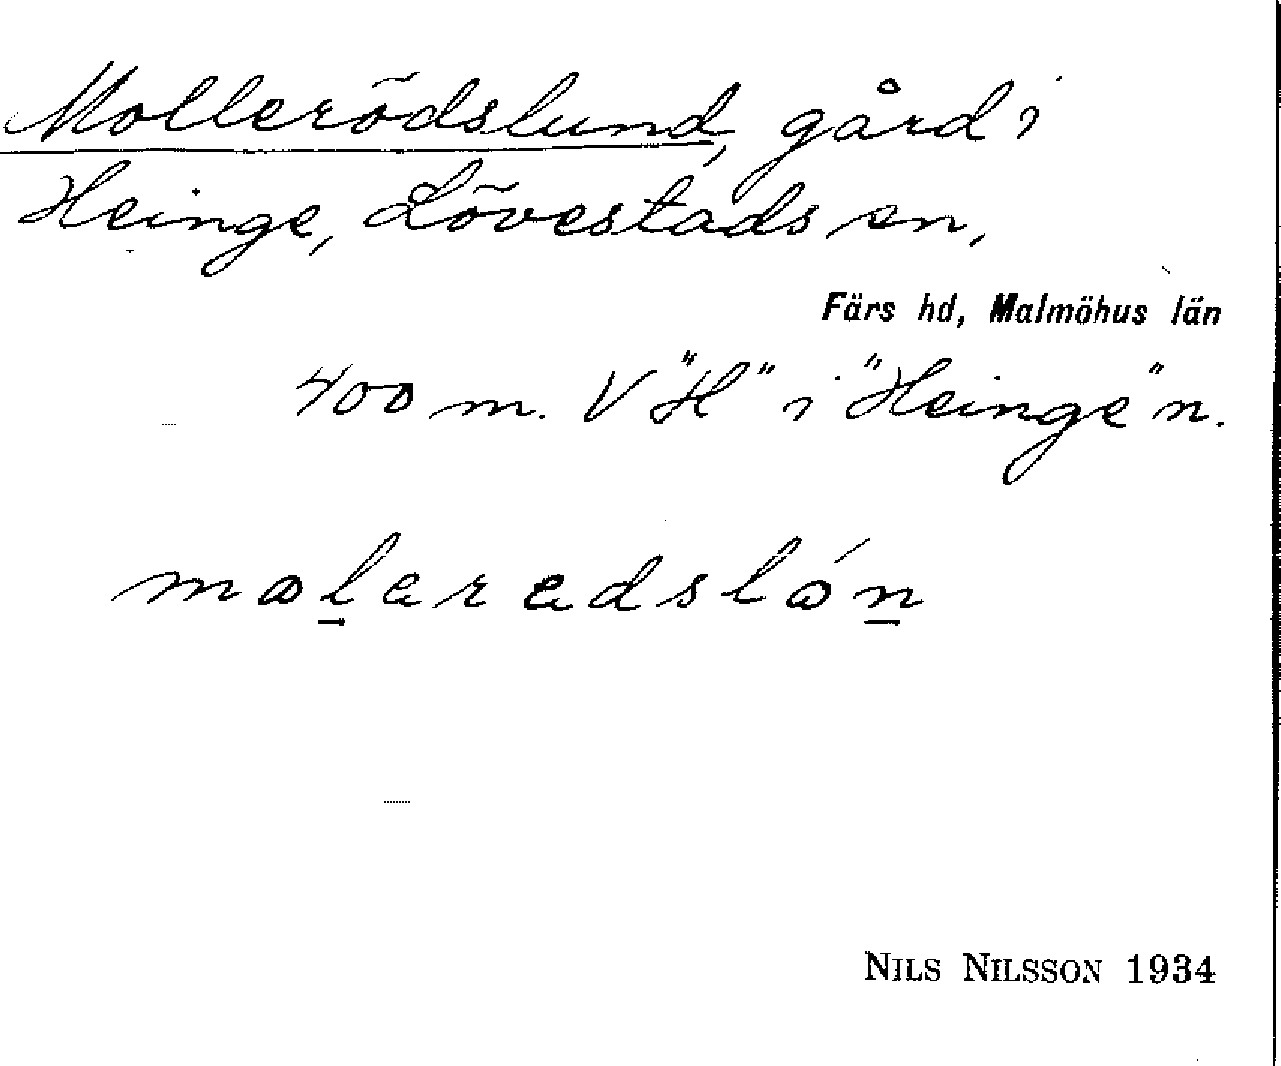 Mollerödslund, gård i
Heinge, Lövestads sn,
Färs hd, Malmöhus län
400 m. V "H" i "Heinge" n.
NILS NILSSON 1934